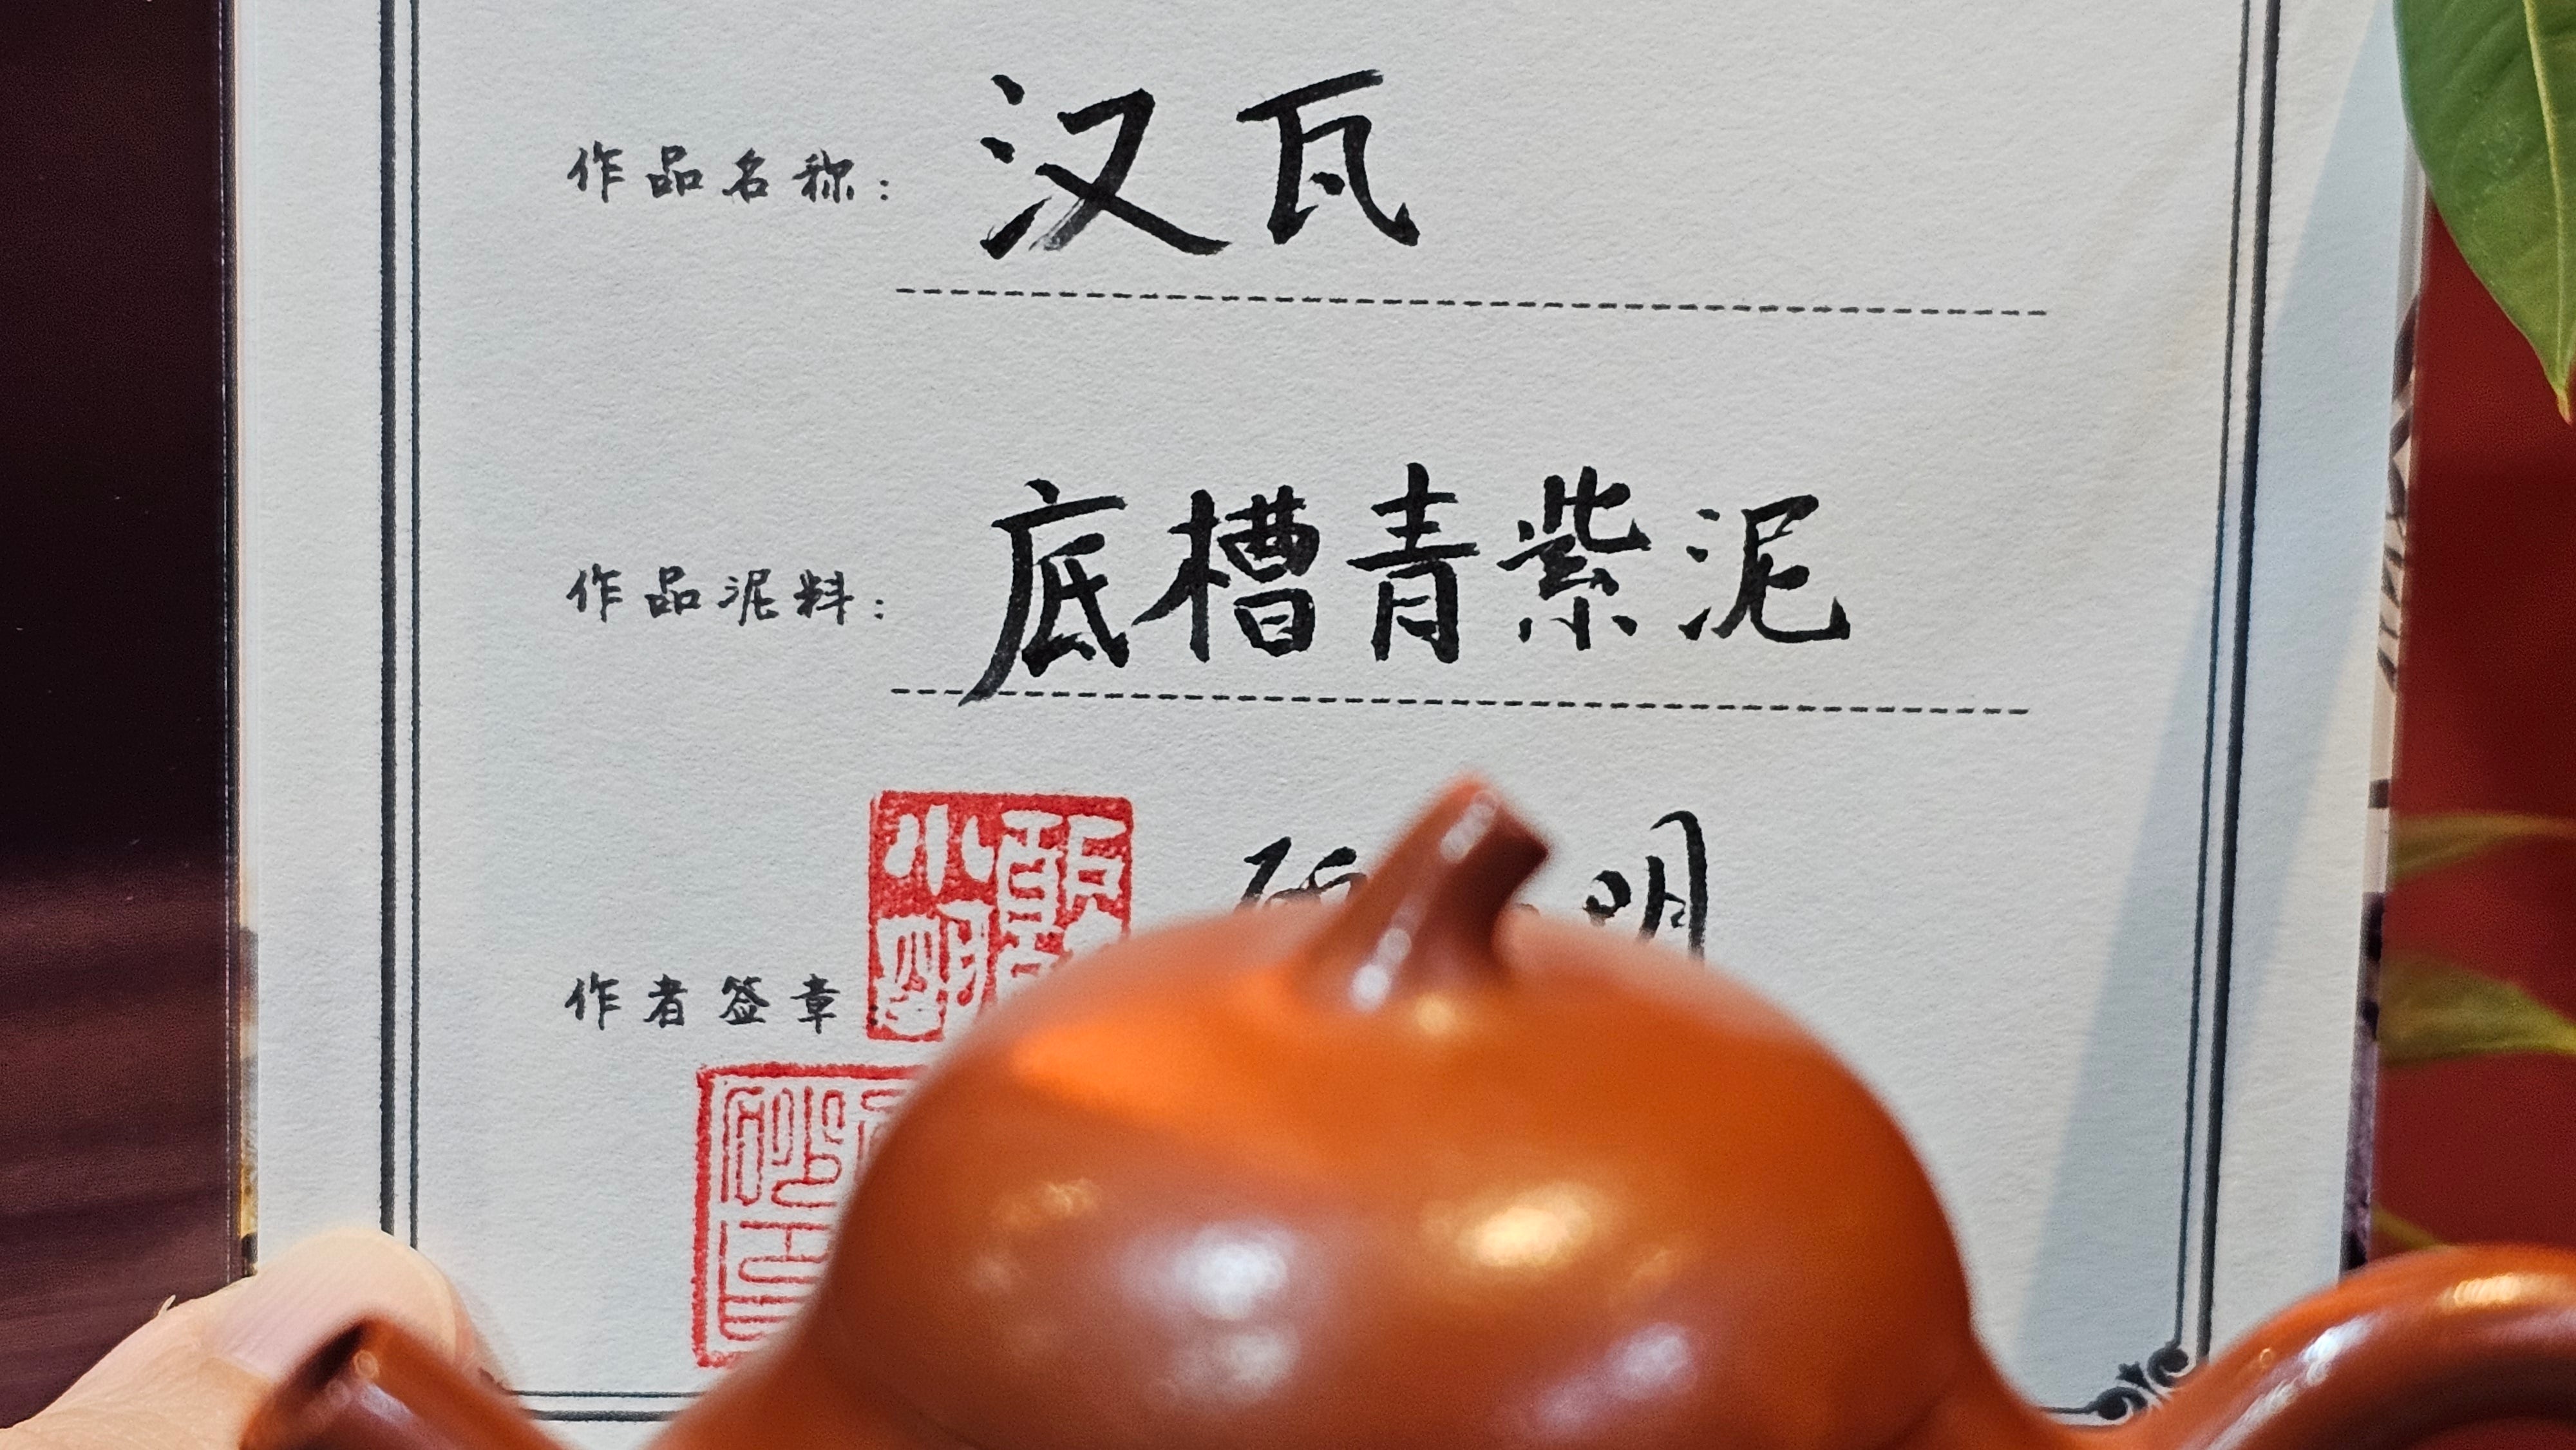 作品名称：汉瓦
作品泥料：底槽青紫泥
作者签章
小明
明